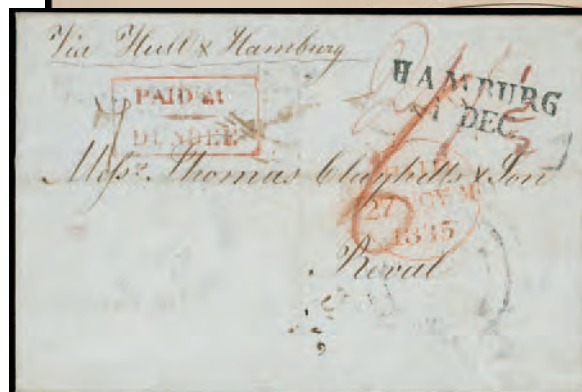 Via Hull & Hamburg
PAID at
DUNDEE
HAMBURG
DEC.
Messrs. Thomas Clayhills & Son
27 NOV
1835
Reval